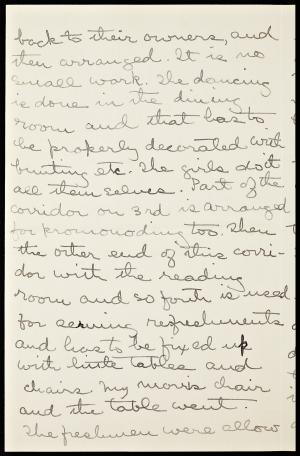 back to their owners, and
then arranged. It is no
small work. The dancing
is done in the dining
room and that has to
be properly decorated with
bunting etc. The girls do it
all themselves. Part of the
corridor on 3rd is arranged
for promonading too. Then
the other end of this corri-
dor with the reading
room and so forth is used
for serving refreshments
and has to be fixed up
with little tables and
chairs. My morris chair
and the table went.
The freshmen were allow